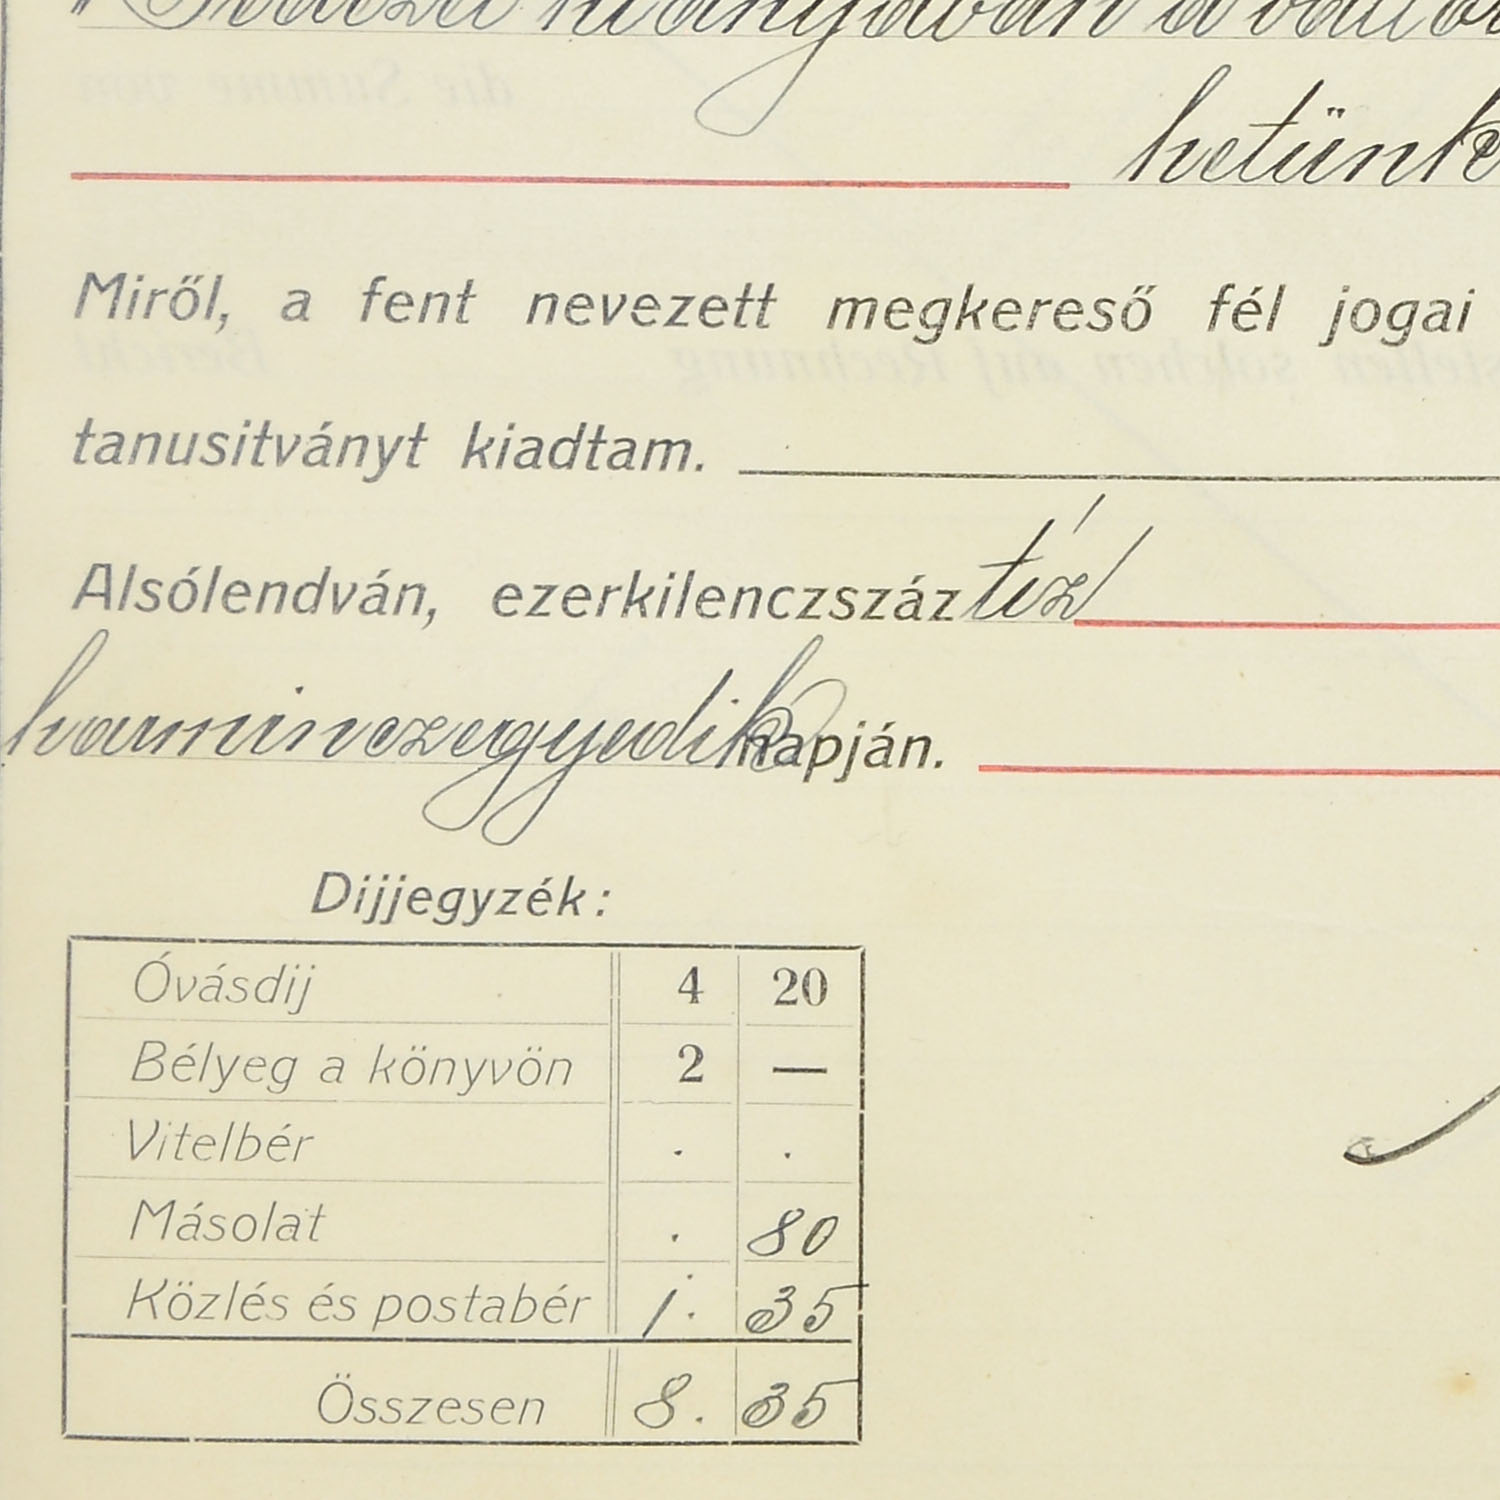 hiányában a
hetünk
Miről, a fent nevezett megkereső fél jogai
tanusitványt kiadtam.
Alsólendván, ezerkilenczszáz tíz
harminczegyedik napján.
Dijjegyzék:
Óvásdij 4 20
Bélyeg a könyvön 2 —
Vitelbér . .
Másolat . 80
Közlés és postabér 1. 35
Összesen 8. 35